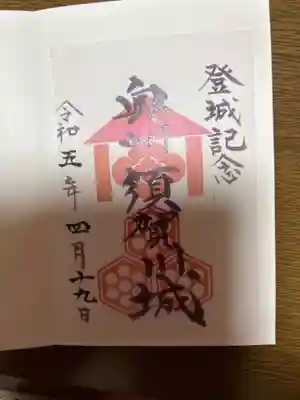 登城記念
奥州須賀川城
令和五年 四月十九日